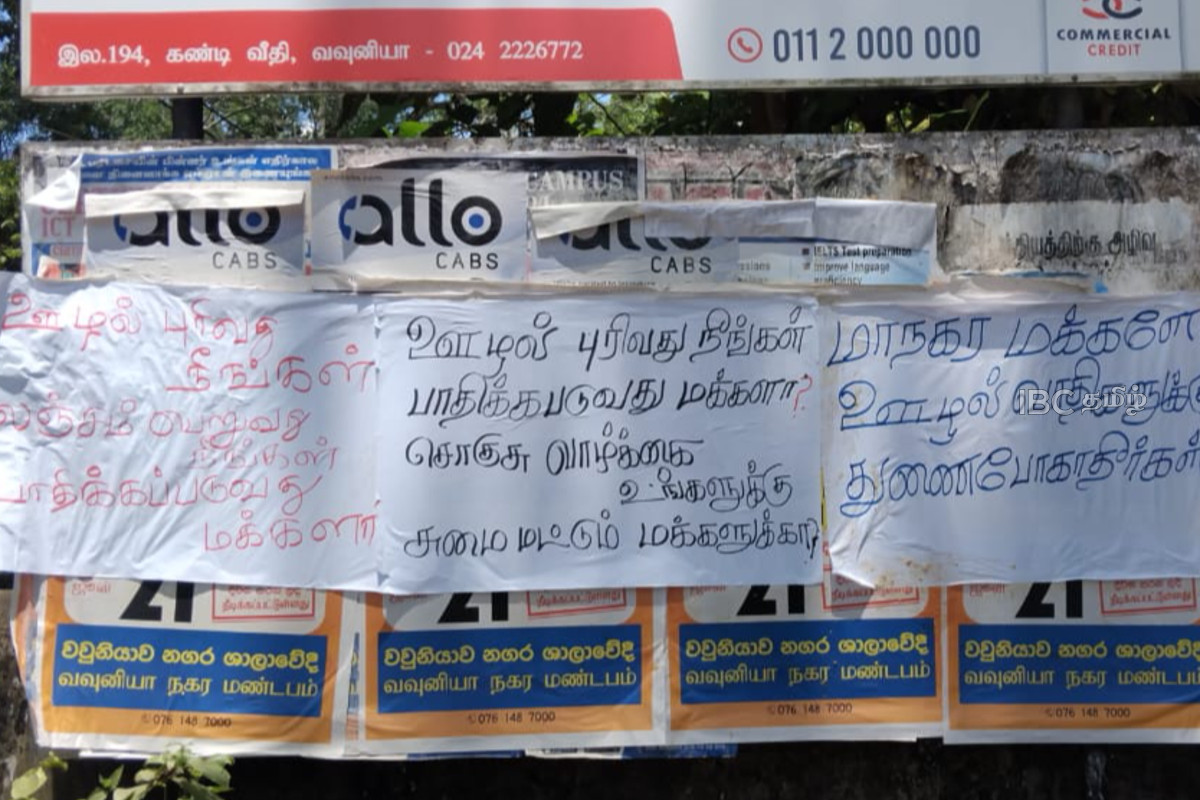 இல.194, கண்டி வீதி, வவுனியா - 024 2226772
011 2 000 000
COMMERCIAL
CREDIT
CAMPUS
ICT
allo
CABS
allo
CABS
allo
CABS
IELTS Test preparation
Improve language
proficiency
ஊழல் புரிவது
நீங்கள்
லஞ்சம் பெறுவது
நீங்கள்
பாதிக்கப்படுவது
மக்களா
ஊழல் புரிவது நீங்கள்
பாதிக்கபடுவது மக்களா?
சொகுசு வாழ்க்கை
உங்களுக்கு
சுமைமட்டும் மக்களுக்கா?
மாநகர மக்களே
ஊழல்
துணைபோகாதீர்கள்
IBC தமிழ்
21
நீடிக்கப்பட்டுள்ளது
වවුනියාව නගර ශාලාවේදී
வவுனியா நகர மண்டபம்
076 148 7000
21
நீடிக்கப்பட்டுள்ளது
වවුනියාව නගර ශාලාවේදී
வவுனியா நகர மண்டபம்
076 148 7000
21
වවුනියාව නගර ශාලාවේදී
வவுனியா நகர மண்டபம்
076 148 7000
21
වවුනියාව නගර ශාලාවේදී
வவுனியா நகர மண்டபம்
076 148 7000